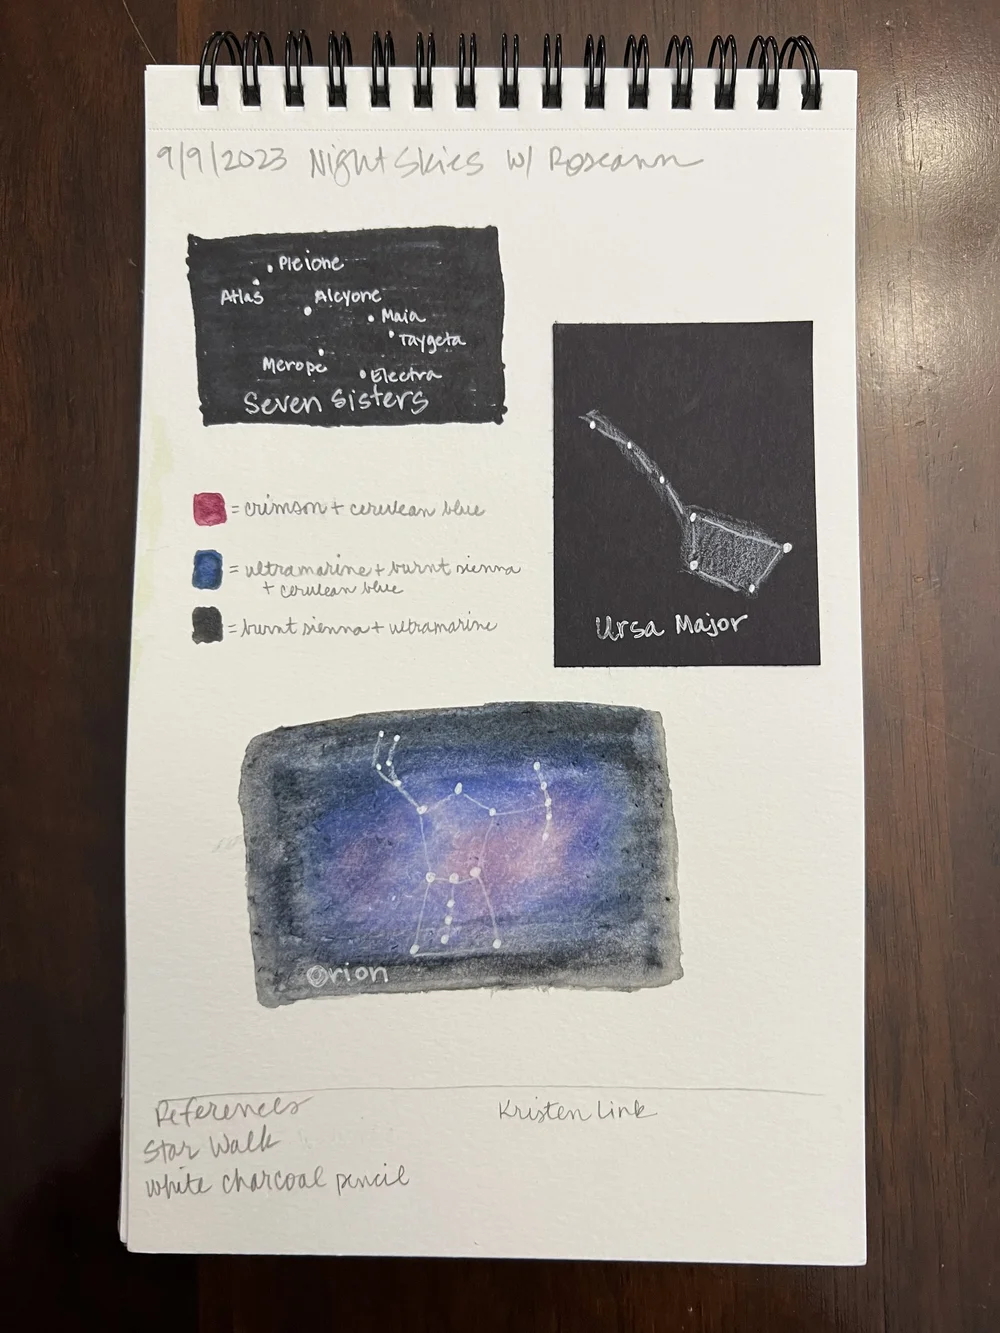 9/9/2023 Night Skies w/ Roseann
Pleione
Atlas
Alcyone
Maia
Taygeta
Merope
Electra
Seven Sisters
= crimson + cerulean blue
= ultramarine + burnt sienna
+ cerulean blue
= burnt sienna + ultramarine
Ursa Major
Orion
References
Star Walk
white charcoal pencil
Kristen Link